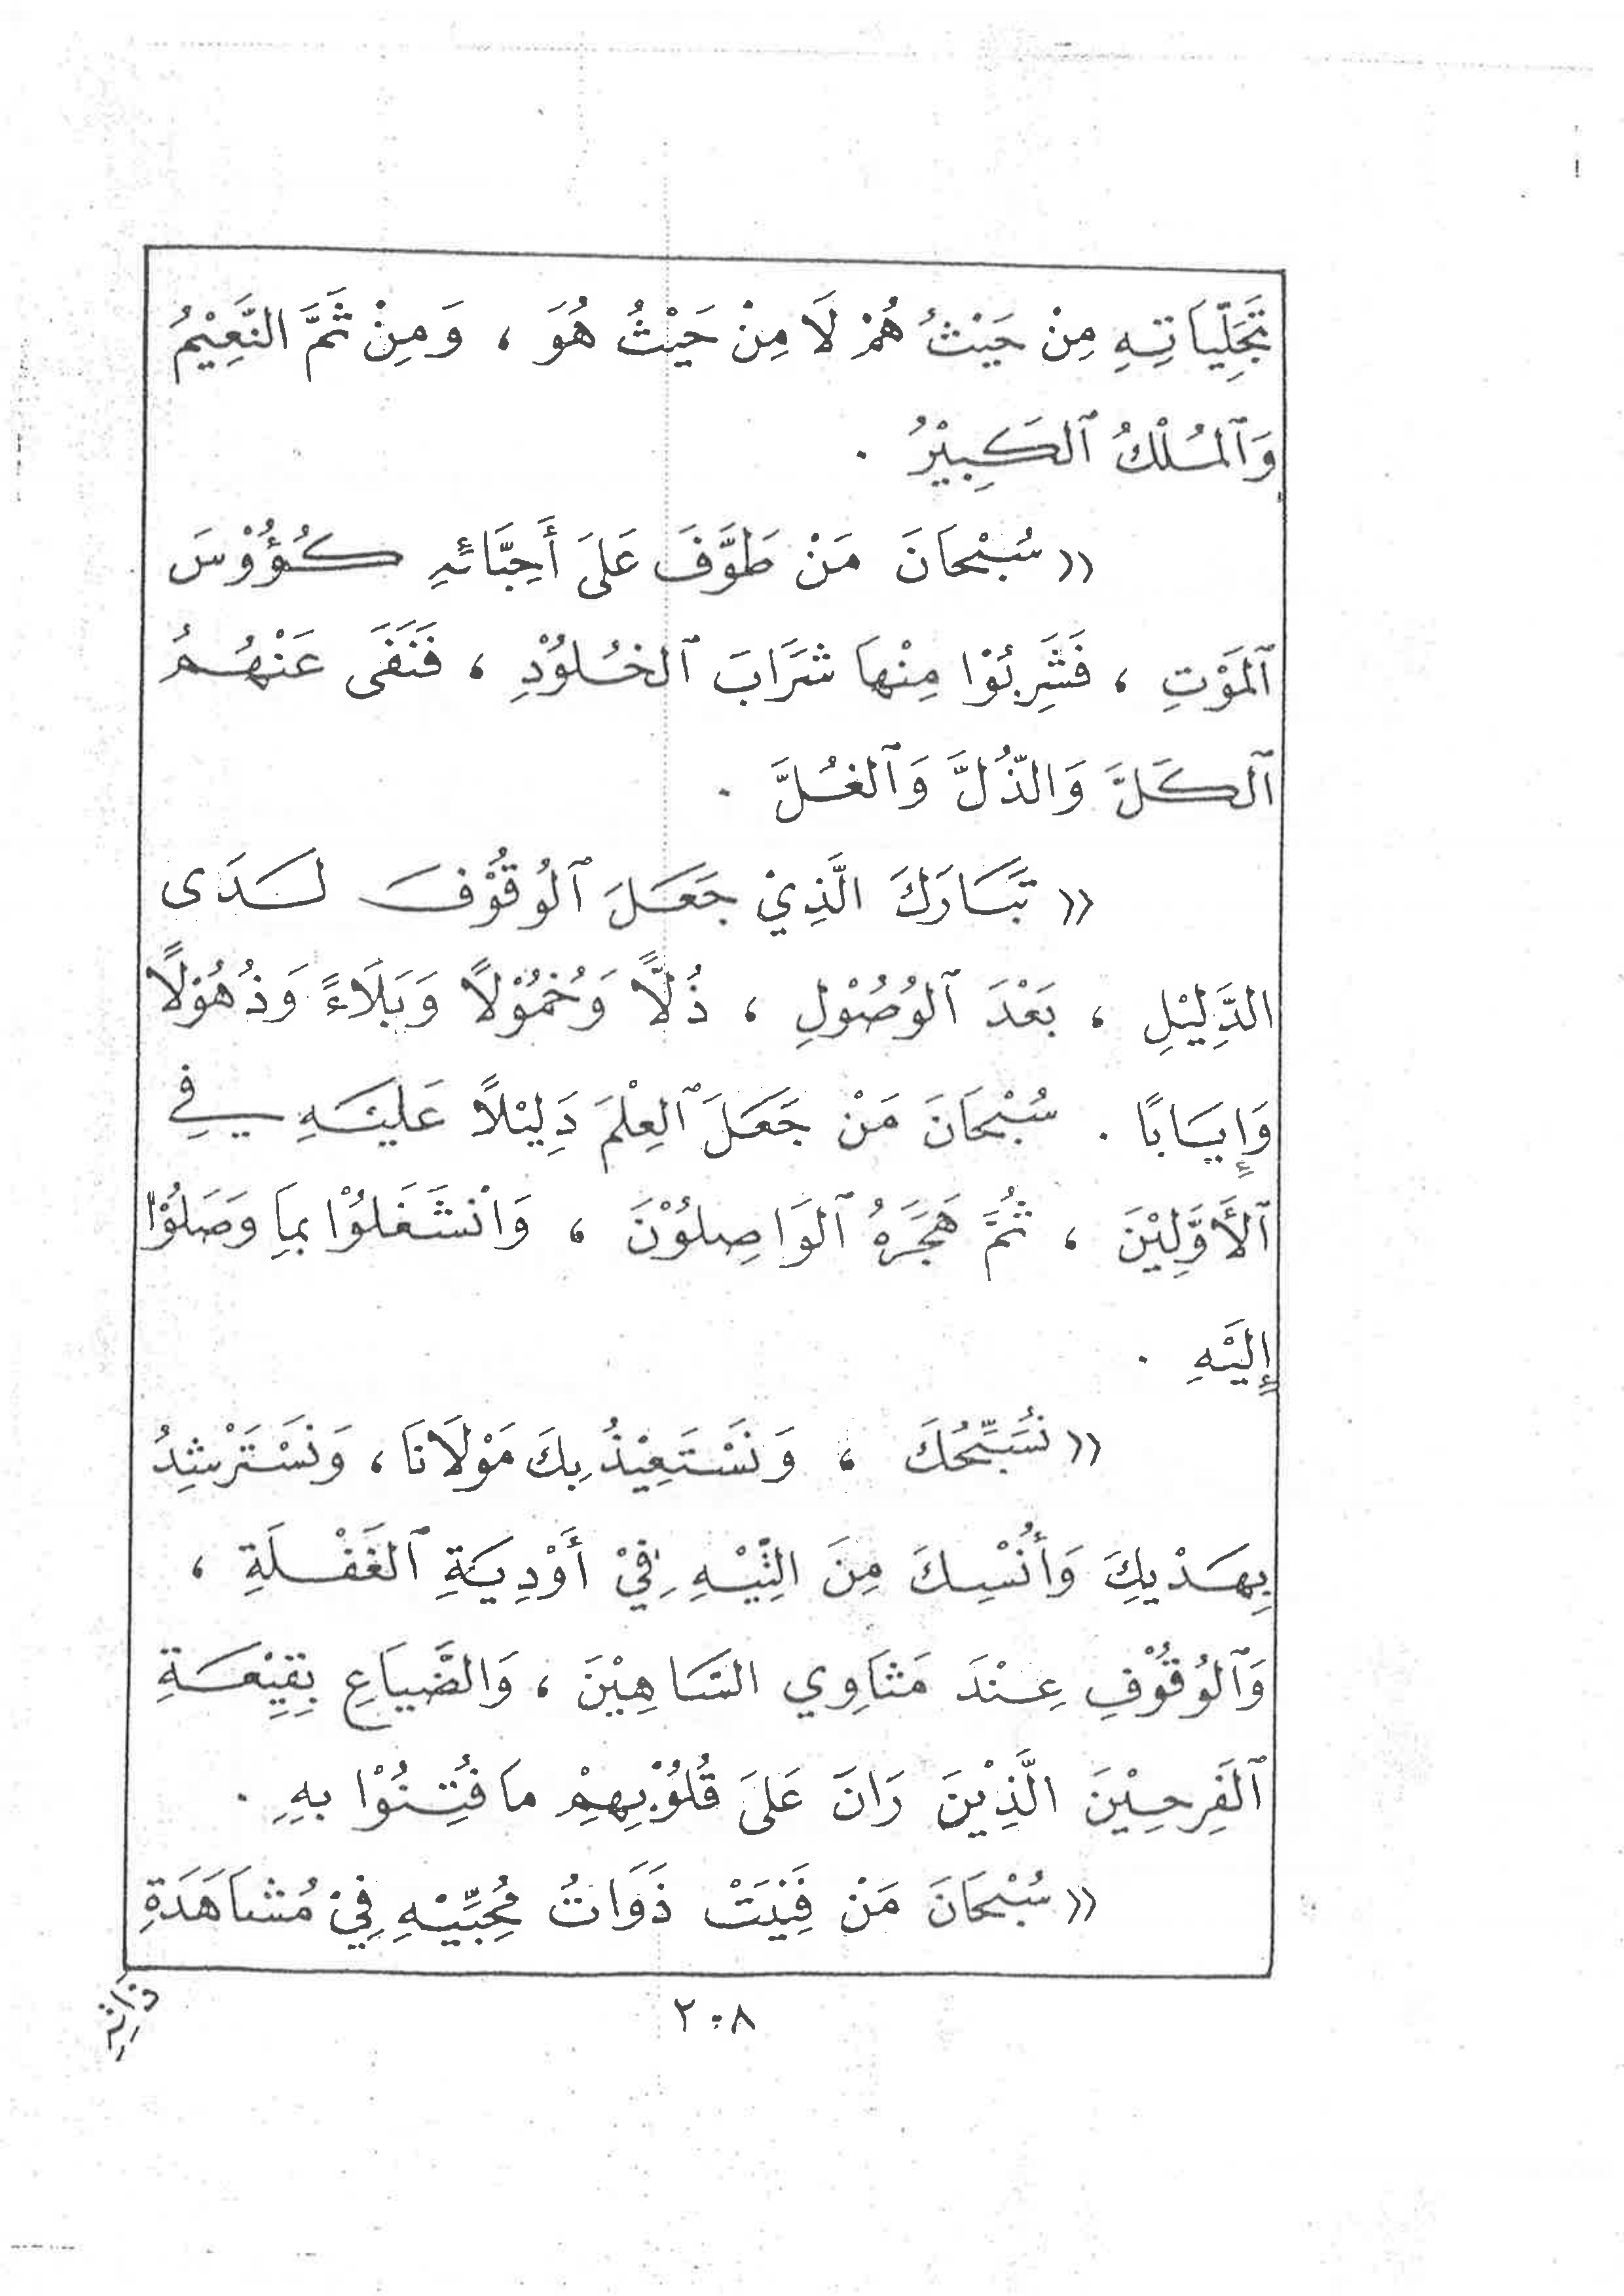 تَجَلِّيَاتِهِ مِنْ حَيْثُ هُمْ لَا مِنْ حَيْثُ هُوَ ، وَمِنْ ثَمَّ النَّعِيْمُ
وَٱلْمُلْكُ ٱلكَبِيْرُ .
(( سُبْحَانَ مَنْ طَوَّفَ عَلَىَ أَحِبَّائِهِ كُؤُوْسَ
ٱلمَوْتِ ، فَشَرِبُوْا مِنْهَا شَرَابَ ٱلخُلُوْدِ ، فَنَفَى عَنْهُمُ
ٱلكَلَّ وَالذُّلَّ وَٱلغُلَّ .
(( تَبَارَكَ الَّذِيْ جَعَلَ ٱلوُقُوْفَ لَدَى
الدَّلِيْلِ ، بَعْدَ ٱلوُصُوْلِ ، ذُلًّا وَخُمُوْلًا وَبَلَاءً وَذُهُوْلًا
وَإِيَابًا . سُبْحَانَ مَنْ جَعَلَ ٱلعِلْمَ دَلِيْلاً عَلَيْهِ فِي
ٱلأَوَّلِيْنَ ، ثُمَّ هَجَرَهُ ٱلوَاصِلُوْنَ ، وَانْشَغَلُوْا بِمَا وَصَلُوْا
إِلَيْهِ .
(( نُسَبِّحُكَ ، وَنَسْتَعِيْذُ بِكَ مَوْلَانَا ، وَنَسْتَرْشِدُ
بِهَدْيِكَ وَأُنْسِكَ مِنَ التِّيْهِ فِيْ أَوْدِيَةِ ٱلغَفْلَةِ ،
وَٱلوُقُوْفِ عِنْدَ مَثَاوِي السَّاهِيْنَ ، وَالضَّيَاعِ بِقِيْعَةِ
ٱلفَرِحِيْنَ الَّذِيْنَ رَانَ عَلَىَ قُلُوْبِهِمْ مَا فُتِنُوْا بِهِ .
(( سُبْحَانَ مَنْ فَنِيَتْ ذَوَاتُ مُحِبِّيْهِ فِيْ مُشَاهَدَةِ
ذَاتِهِ
٢٠٨